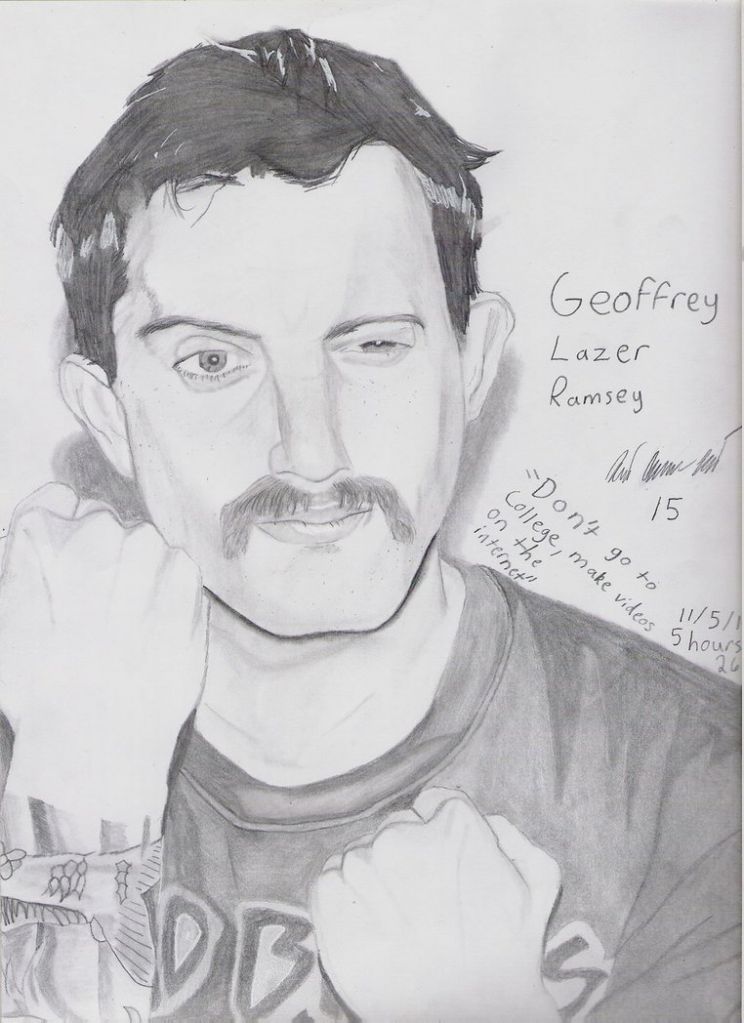 Geoffrey
Lazer
Ramsey
15
"Don't go to
College, make videos
on the
internet"
11/5/1
5 hours
26
DB
S